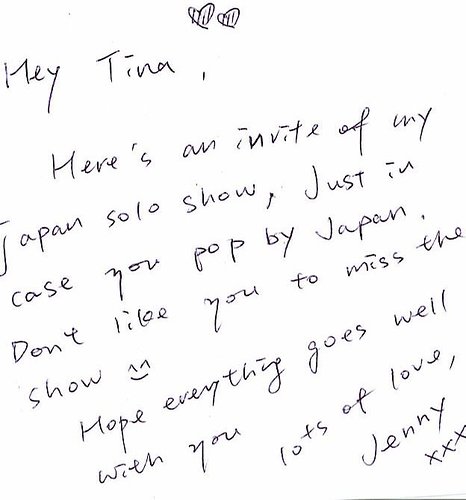 Hey Tina,
Here's an invite of my
Japan solo show, Just in
case you pop by Japan.
Don't like you to miss the
show
Hope everything goes well
with you
lots of love,
Jenny
xxx